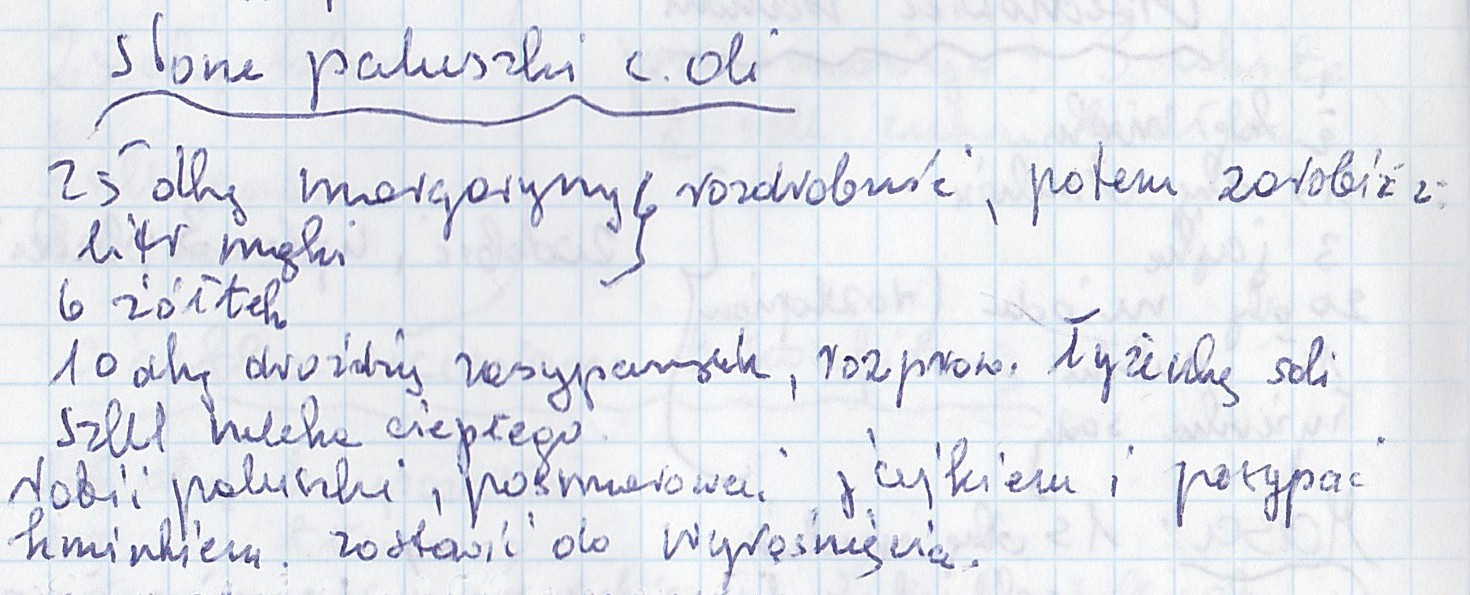 Słone paluszki c. Oli
25 dkg margaryny } rozdrobnić, potem zarobić z:
litr mąki
6 żółtek
10 dkg drożdży rozprow. łyżeczką soli
szkl mleka ciepłego.
robić paluszki, posmarować jajkiem i posypać
kminkiem. zostawić do wyrośnięcia.